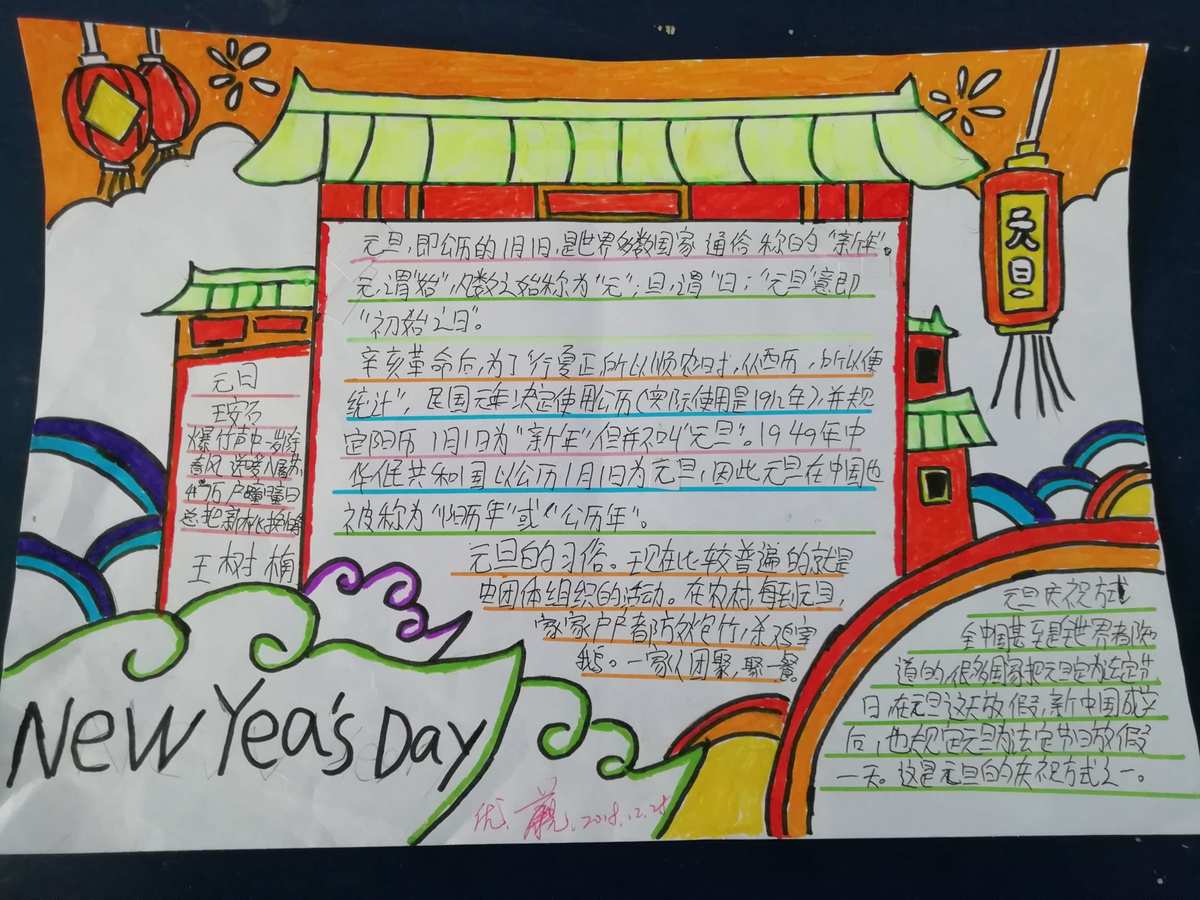 元旦
元旦，即公历的1月1日，是世界多数国家通俗称的"新年"。
元，谓"始"，凡数之始称为"元"；旦，谓"日；"元旦"意即
"初始之日"。
辛亥革命后，为了"行夏正，所以顺农时，从西历，所以便
统计"，民国元年决定使用公历（实际使用是1912年），并规
定阳历1月1日为"新年"，但并不叫"元旦"。1949年中
华人民共和国以公历1月1日为元旦，因此元旦在中国也
被称为"阳历年"或"公历年"。
元旦的习俗。现在比较普遍的就是
由团体组织的活动。在农村，每到元旦，
家家户户都防放包竹，杀鸡宰
鹅。一家人团聚，聚一餐。
元日
王安石
爆竹声中一岁除
春风送暖入屠苏
千万户曈曈日
总把新桃换旧符
王树楠
元旦庆祝方式
全中国甚至是全世界都知
道的，很多国家把元旦定为法定节
日，在元旦这天放假，新中国成立
后，也规定元旦为法定节日放假
一天。这是元旦的庆祝方式之一。
New Yea's Day
优 2018.12.28